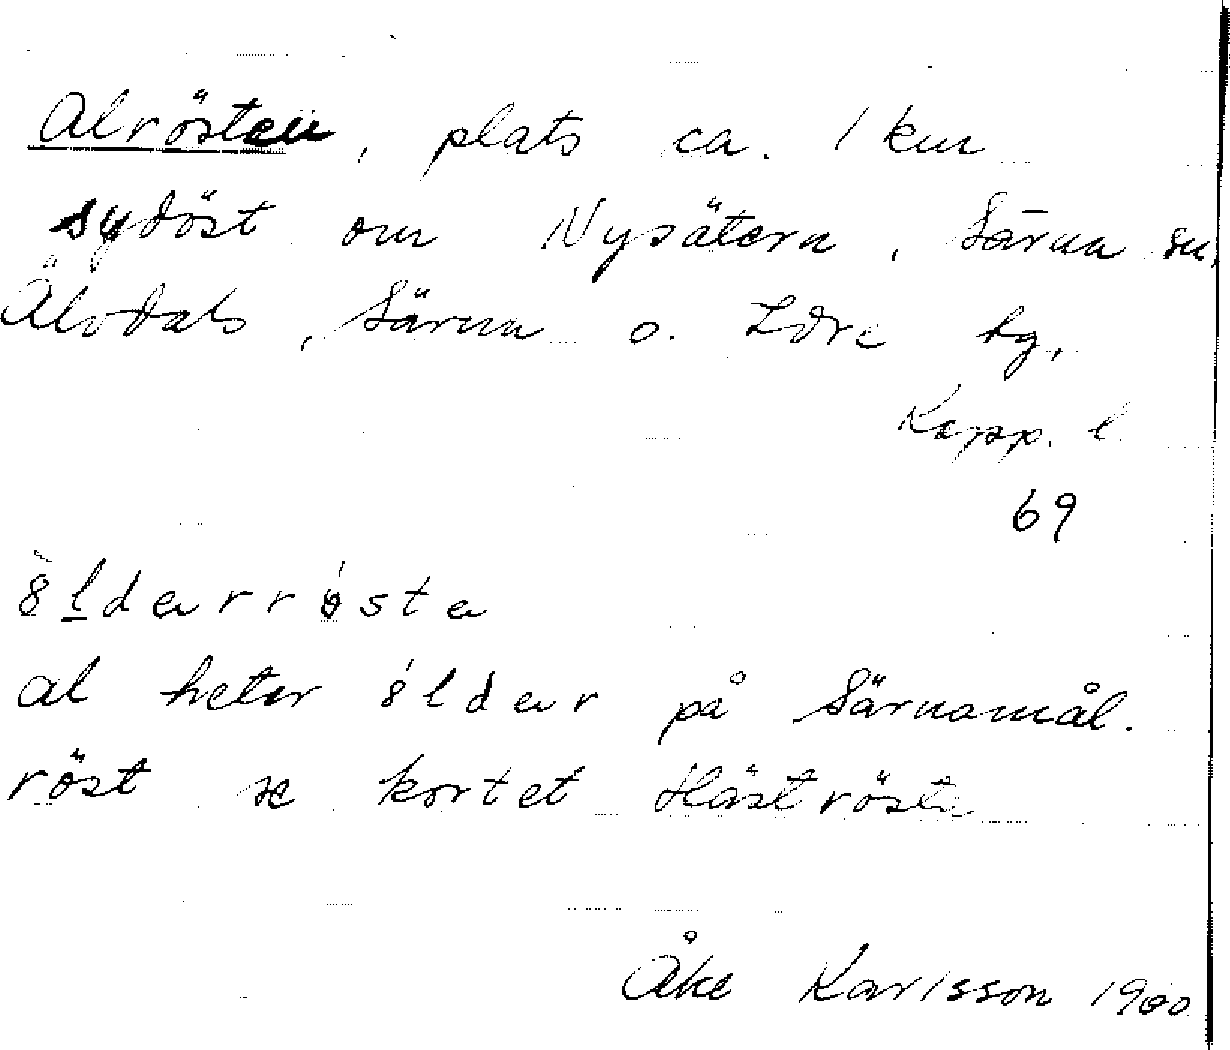 Alrösten, plats ca. 1 km
sydöst om Nysätern, Särna sn,
Älvdals, Särna o. Idre tg,
Kopp. l.
69
ölderrösta
al heter ölder på Särnamål.
röst se kortet Häströsta
Åke Karlsson 1900